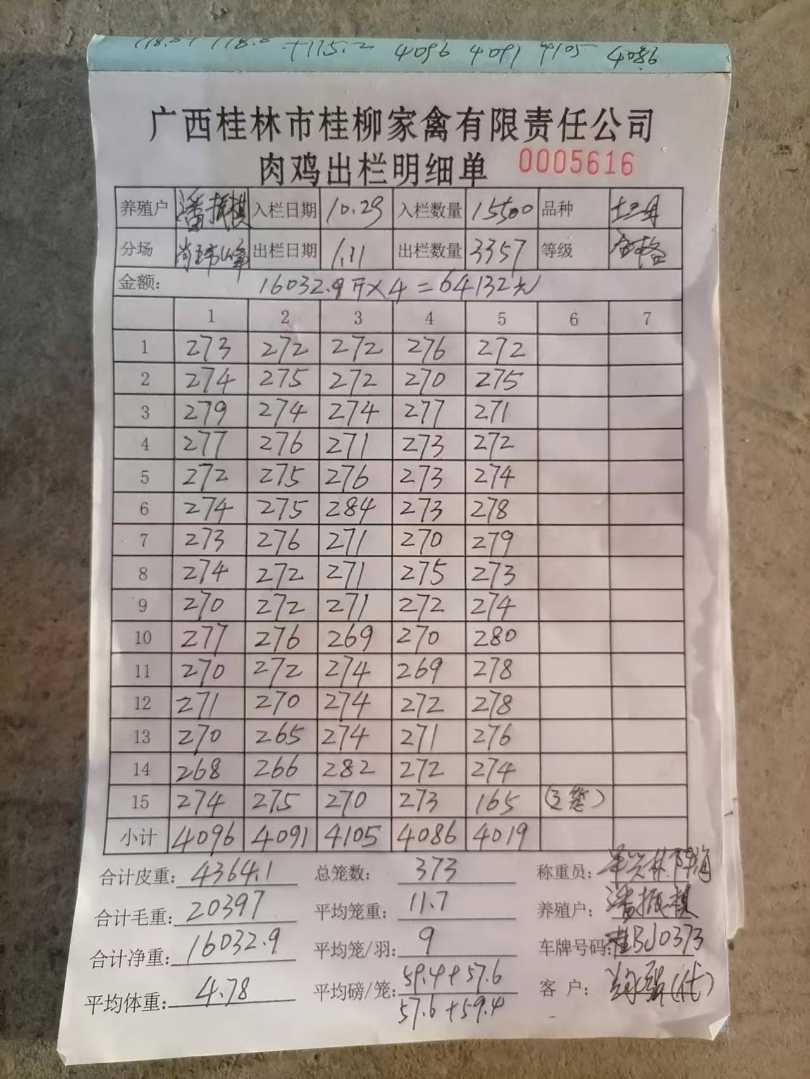 +115.2 4096 4091 4105 4086
广西桂林市桂柳家禽有限责任公司
肉鸡出栏明细单 0005616
养殖户 潘振棋 入栏日期 10.29 入栏数量 15500 品种
分场 出栏日期 1.11 出栏数量 3357 等级 合格
金额: 16032.9斤×4=64132元
1 2 3 4 5 6 7
1 273 272 272 276 272
2 274 275 272 270 275
3 279 274 274 277 271
4 277 276 271 273 272
5 272 275 276 273 274
6 274 275 284 273 278
7 273 276 271 270 279
8 274 272 271 275 273
9 270 272 271 272 274
10 277 276 269 270 280
11 270 272 274 269 278
12 271 270 274 272 278
13 270 265 274 271 276
14 268 266 282 272 274
15 274 275 270 273 165 (3笼)
小计 4096 4091 4105 4086 4019
合计皮重: 4364.1 总笼数: 373 称重员:
合计毛重: 20397 平均笼重: 11.7 养殖户: 潘振棋
合计净重: 16032.9 平均笼/羽: 9 车牌号码: 桂BJ0373
平均体重: 4.78 平均磅/笼: 59.4+57.6 客户:
57.6+59.4